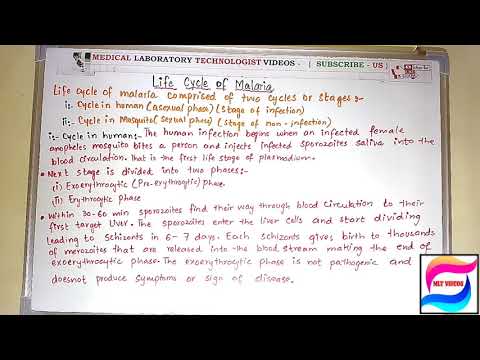 MEDICAL LABORATORY TECHNOLOGIST VIDEOS - ( SUBSCRIBE - US )
Life Cycle of Malaria
Life cycle of malaria comprised of two cycles or stages :-
i:- Cycle in human (asexual phase) (stage of infection)
ii:- Cycle in Mosquito (sexual phase) (stage of non-infection)
i:- Cycle in human:- The human infection begins when an infected female
anopheles mosquito bites a person and injects infected sporozoites saliva into the
blood circulation. That is the first life stage of plasmodium.
• Next stage is divided into two phases:-
(i) Exoerythrocytic (Pre-erythrocytic) phase.
(ii) Erythrocytic phase
• Within 30-60 min sporozoites find their way through blood circulation to their
first target Liver. The sporozoites enter the liver cells and start dividing
leading to schizonts in 6-7 days. Each schizonts gives birth to thousands
of merozoites that are released into the blood stream making the end of
exoerythrocytic phase. The exoerythrocytic phase is not pathogenic and
doesnot produce symptoms or sign of disease.
MLT VIDEOS